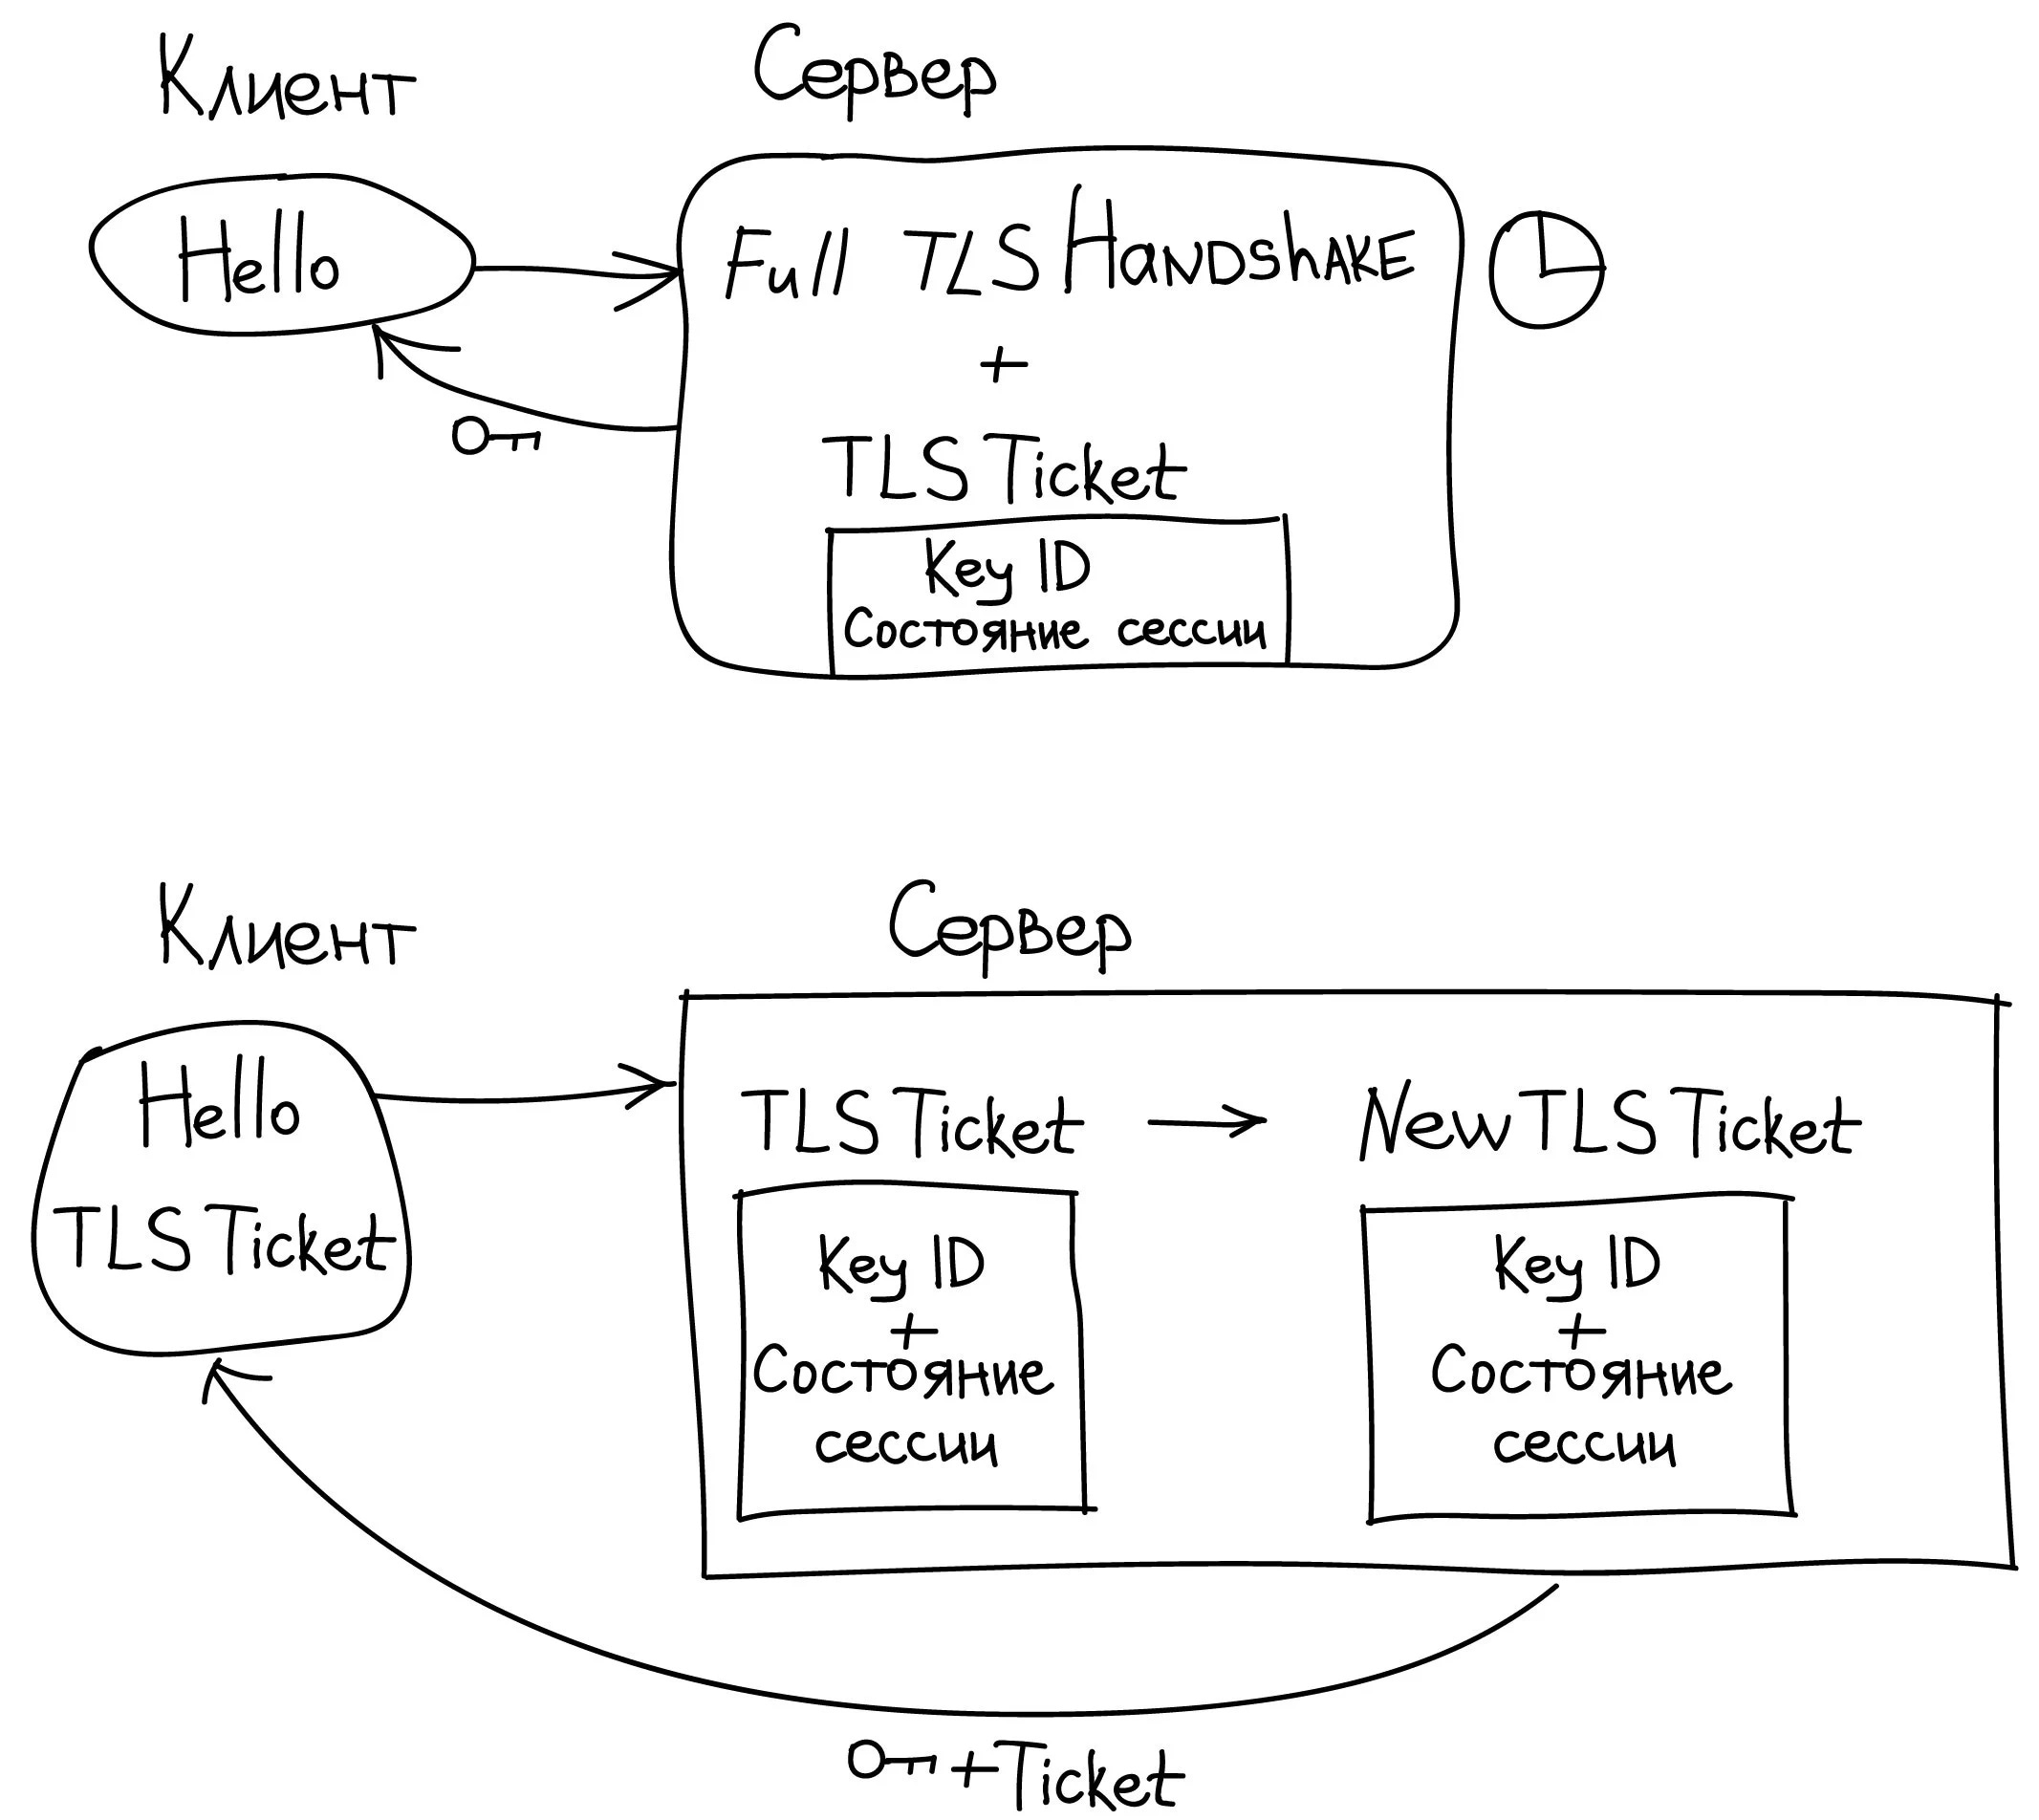 Клиент
Сервер
Hello
Full TLS Handshake
+
TLS Ticket
Key ID
Состояние сессии
Клиент
Сервер
Hello
TLS Ticket
TLS Ticket
New TLS Ticket
Key ID
+
Состояние
сессии
Key ID
+
Состояние
сессии
+ Ticket